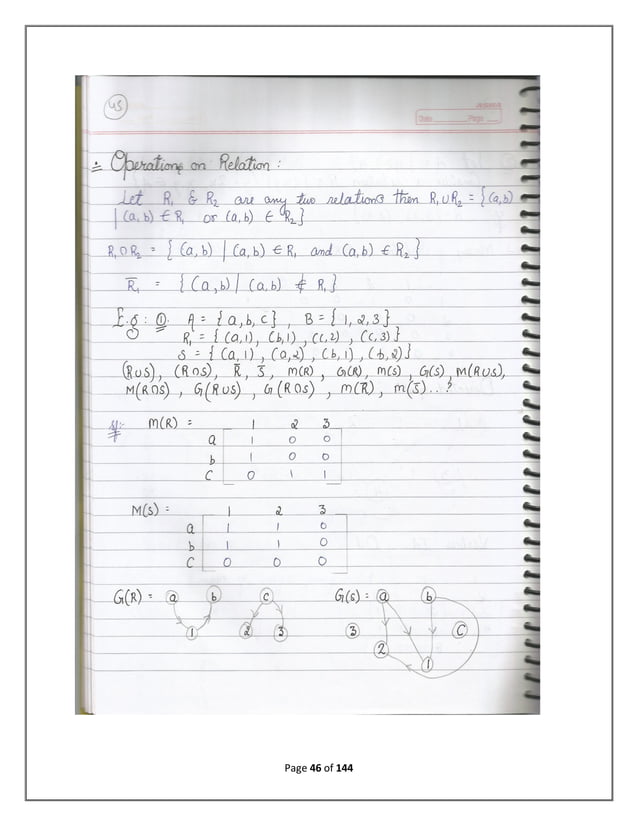 45
Date Page
Operations on Relation :
Let R₁ & R₂ are any two relations then R₁∪R₂ = {(a,b)
| (a,b) ∈ R₁ or (a,b) ∈ R₂}
R₁∩R₂ = { (a,b) | (a,b) ∈ R₁ and (a,b) ∈ R₂ }
R̅₁ = { (a,b) | (a,b) ∉ R₁ }
E.g : ①. A = { a, b, c } , B = { 1, 2, 3 }
R₁ = { (a,1), (b,1), (c,2), (c,3) }
S = { (a,1), (a,2), (b,1), (b,2) }
(R∪S), (R∩S), R̅, S̅, M(R), G(R), M(S), G(S), M(R∪S),
M(R∩S), G(R∪S), G(R∩S), M(R̅), M(S̅)...?
M(R) = 1 2 3
a 1 0 0
b 1 0 0
c 0 1 1
M(S) = 1 2 3
a 1 1 0
b 1 1 0
c 0 0 0
G(R) = a b c G(S) = a b
2 3 3 c
1 2 1
Page 46 of 144